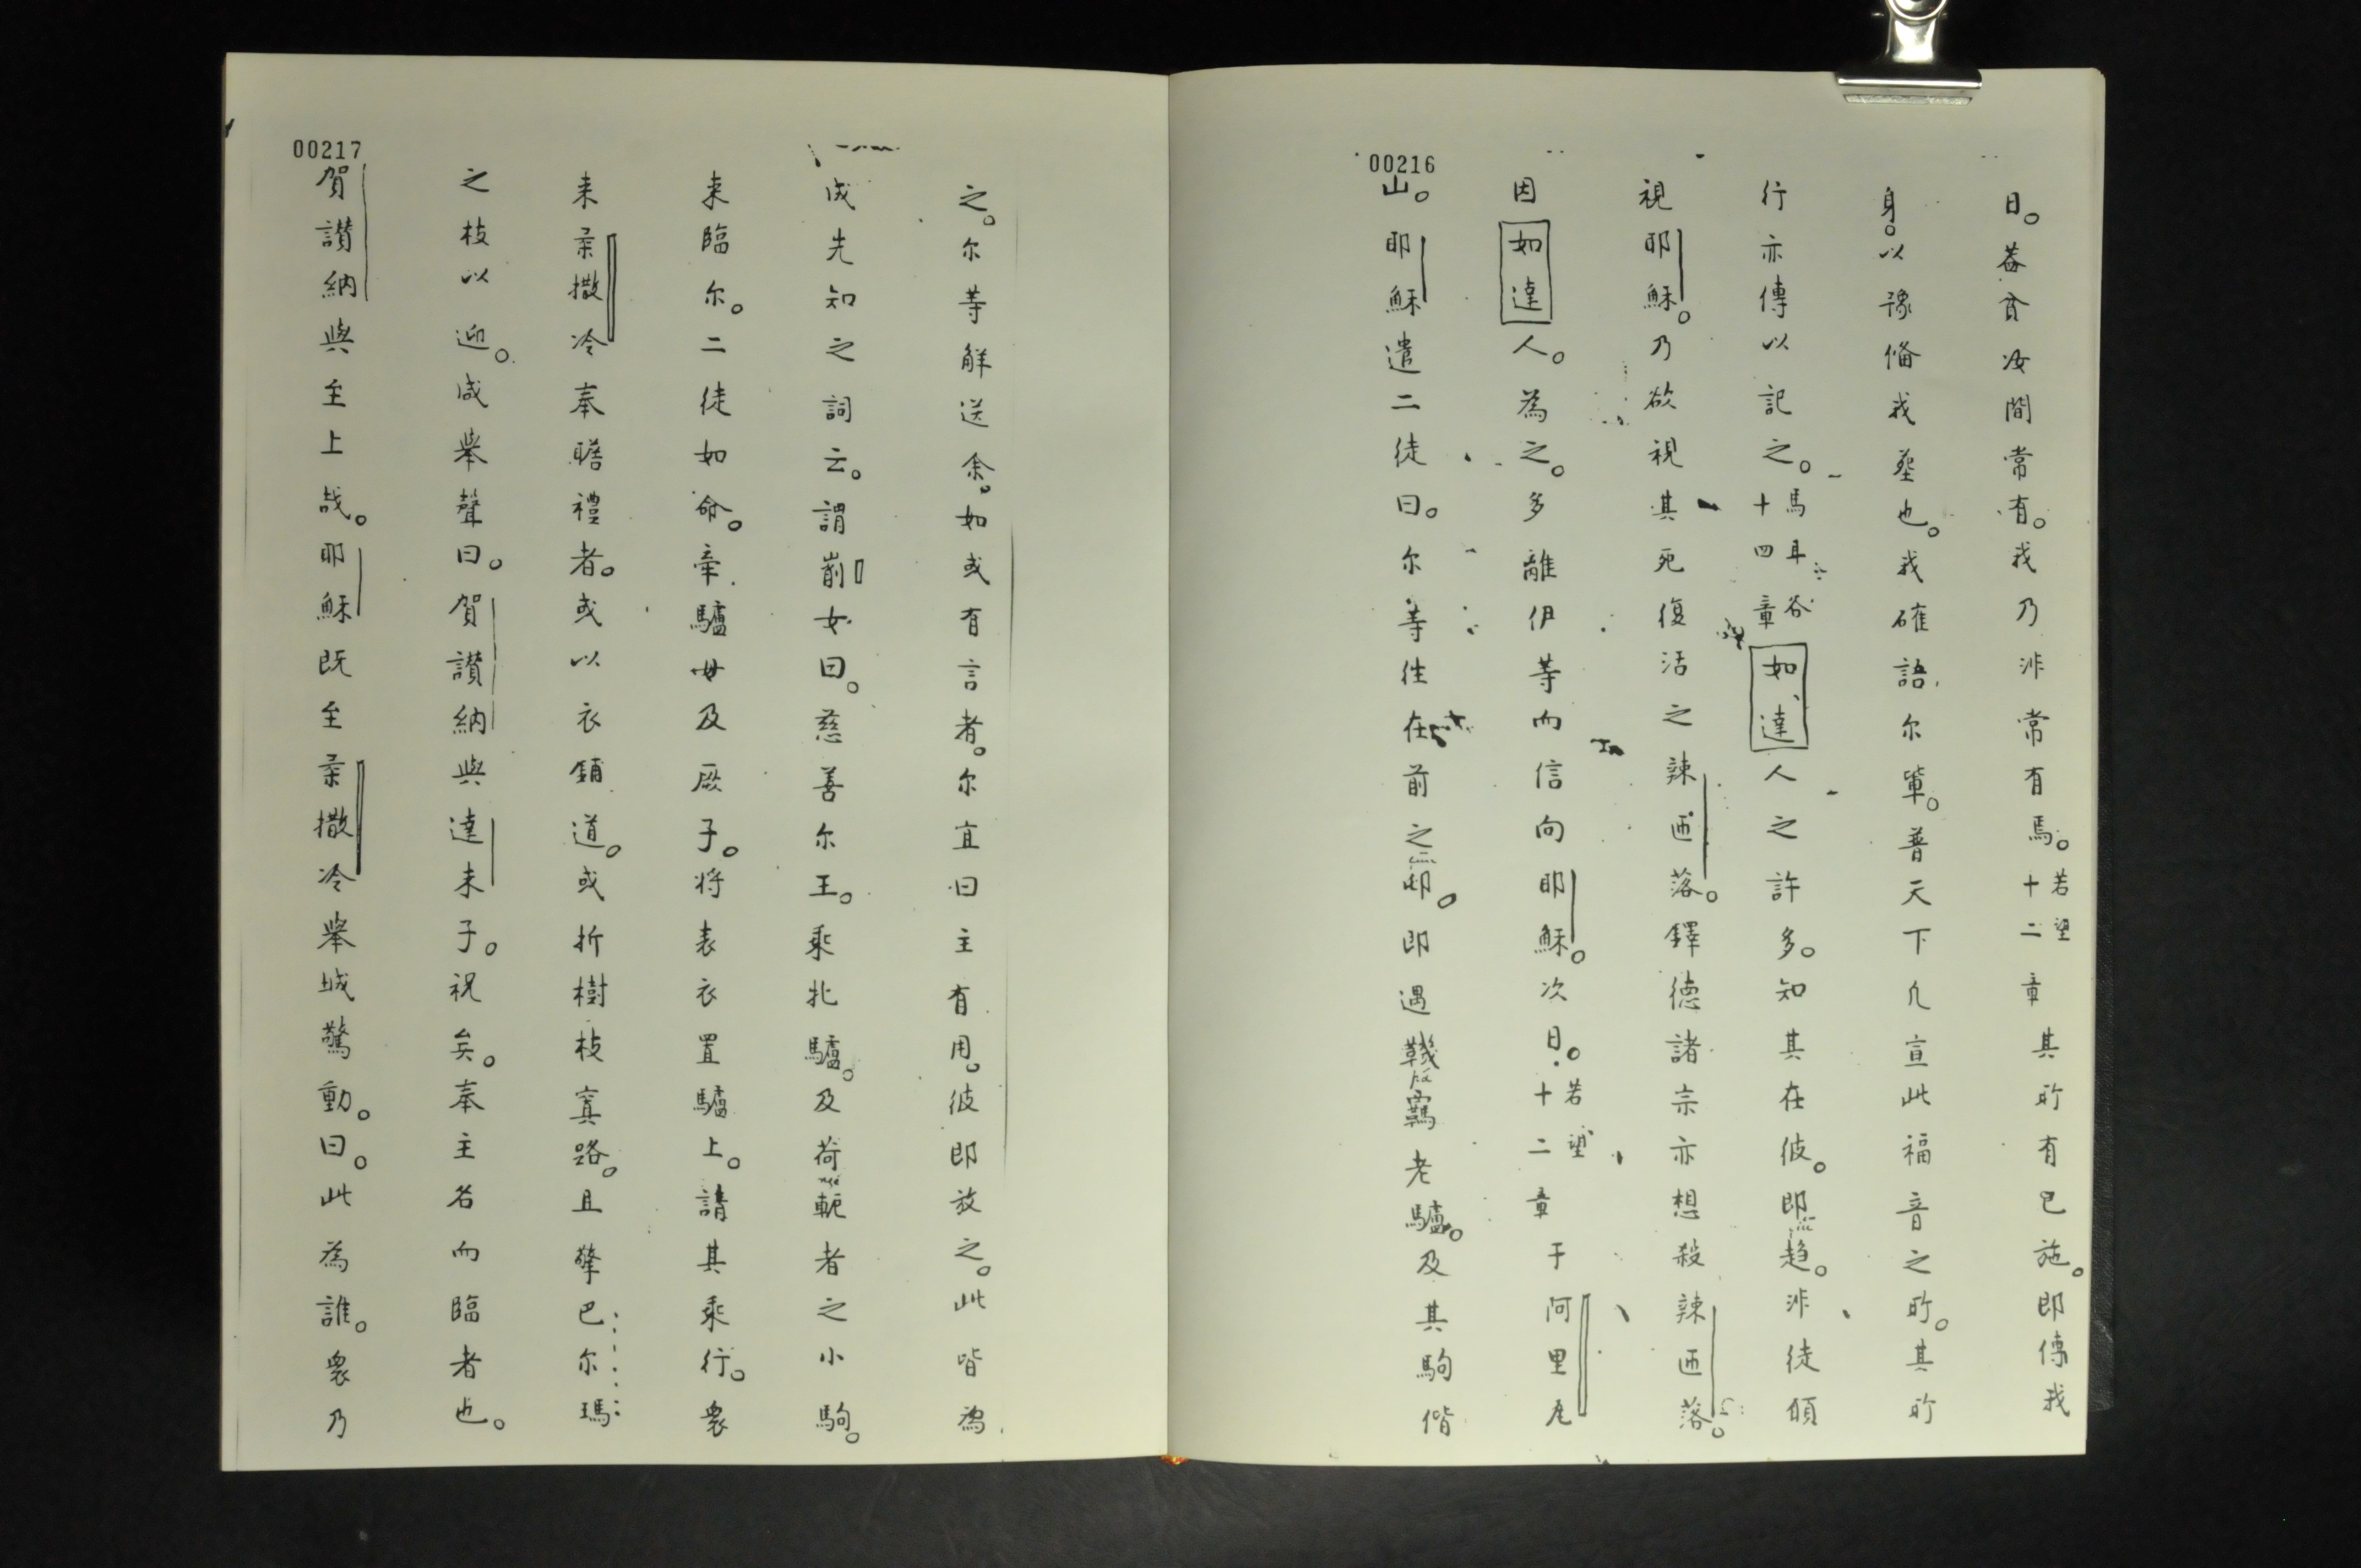 00216
日。蓋貧汝間常有。我乃非常有焉。若望十二章其所有已施。即傅我
身。以豫俻我𦵏也。我確語尔軰。普天下凢宣此福音之所。其所
行亦傳以記之。馬耳谷十四章如達人之許多。知其在彼。即趋。非徒傾
視耶穌。乃欲視其死復活之辣匝落。鐸德諸宗亦想殺辣匝落。
因如達人。為之。多離伊等而信向耶穌。次日。若望十二章于阿里瓦
山。耶穌遣二徒曰。尔等徃在前之邨。即遇羈老驢。及其駒偕
00217
之。尔等觧送余。如或有言者。尔宜曰主有用。彼即放之。此皆為
成先知之詞云。謂女曰。慈善尔王。乘牝驢。及荷軛者之小駒。
来臨尔。二徒如命。牽驢母及厥子。将表衣置驢上。請其乘行。衆
来柔撒冷奉瞻禮者。或以衣鋪道。或折樹枝寘路。且擎巴尔瑪
之枝以迎。咸舉聲曰。賀讃納與達未子。祝矣。奉主名而臨者也。
賀讃納與至上哉。耶穌既至柔撒冷舉城驚動。曰。此為誰。衆乃